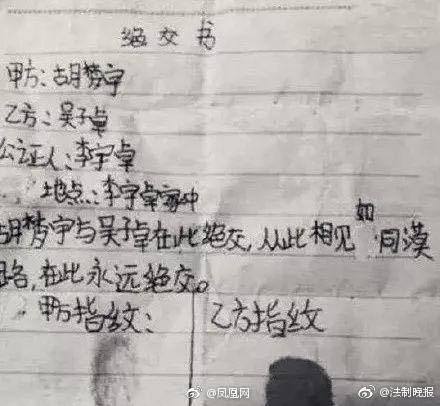 绝交书
甲方:胡梦宇
乙方:吴子卓
公证人:李宇卓
地点:李宇卓家中
胡梦宇与吴子卓在此绝交,从此相见如同漠
路,在此永远绝交。
甲方指纹: 乙方指纹
@凤凰网 @法制晚报